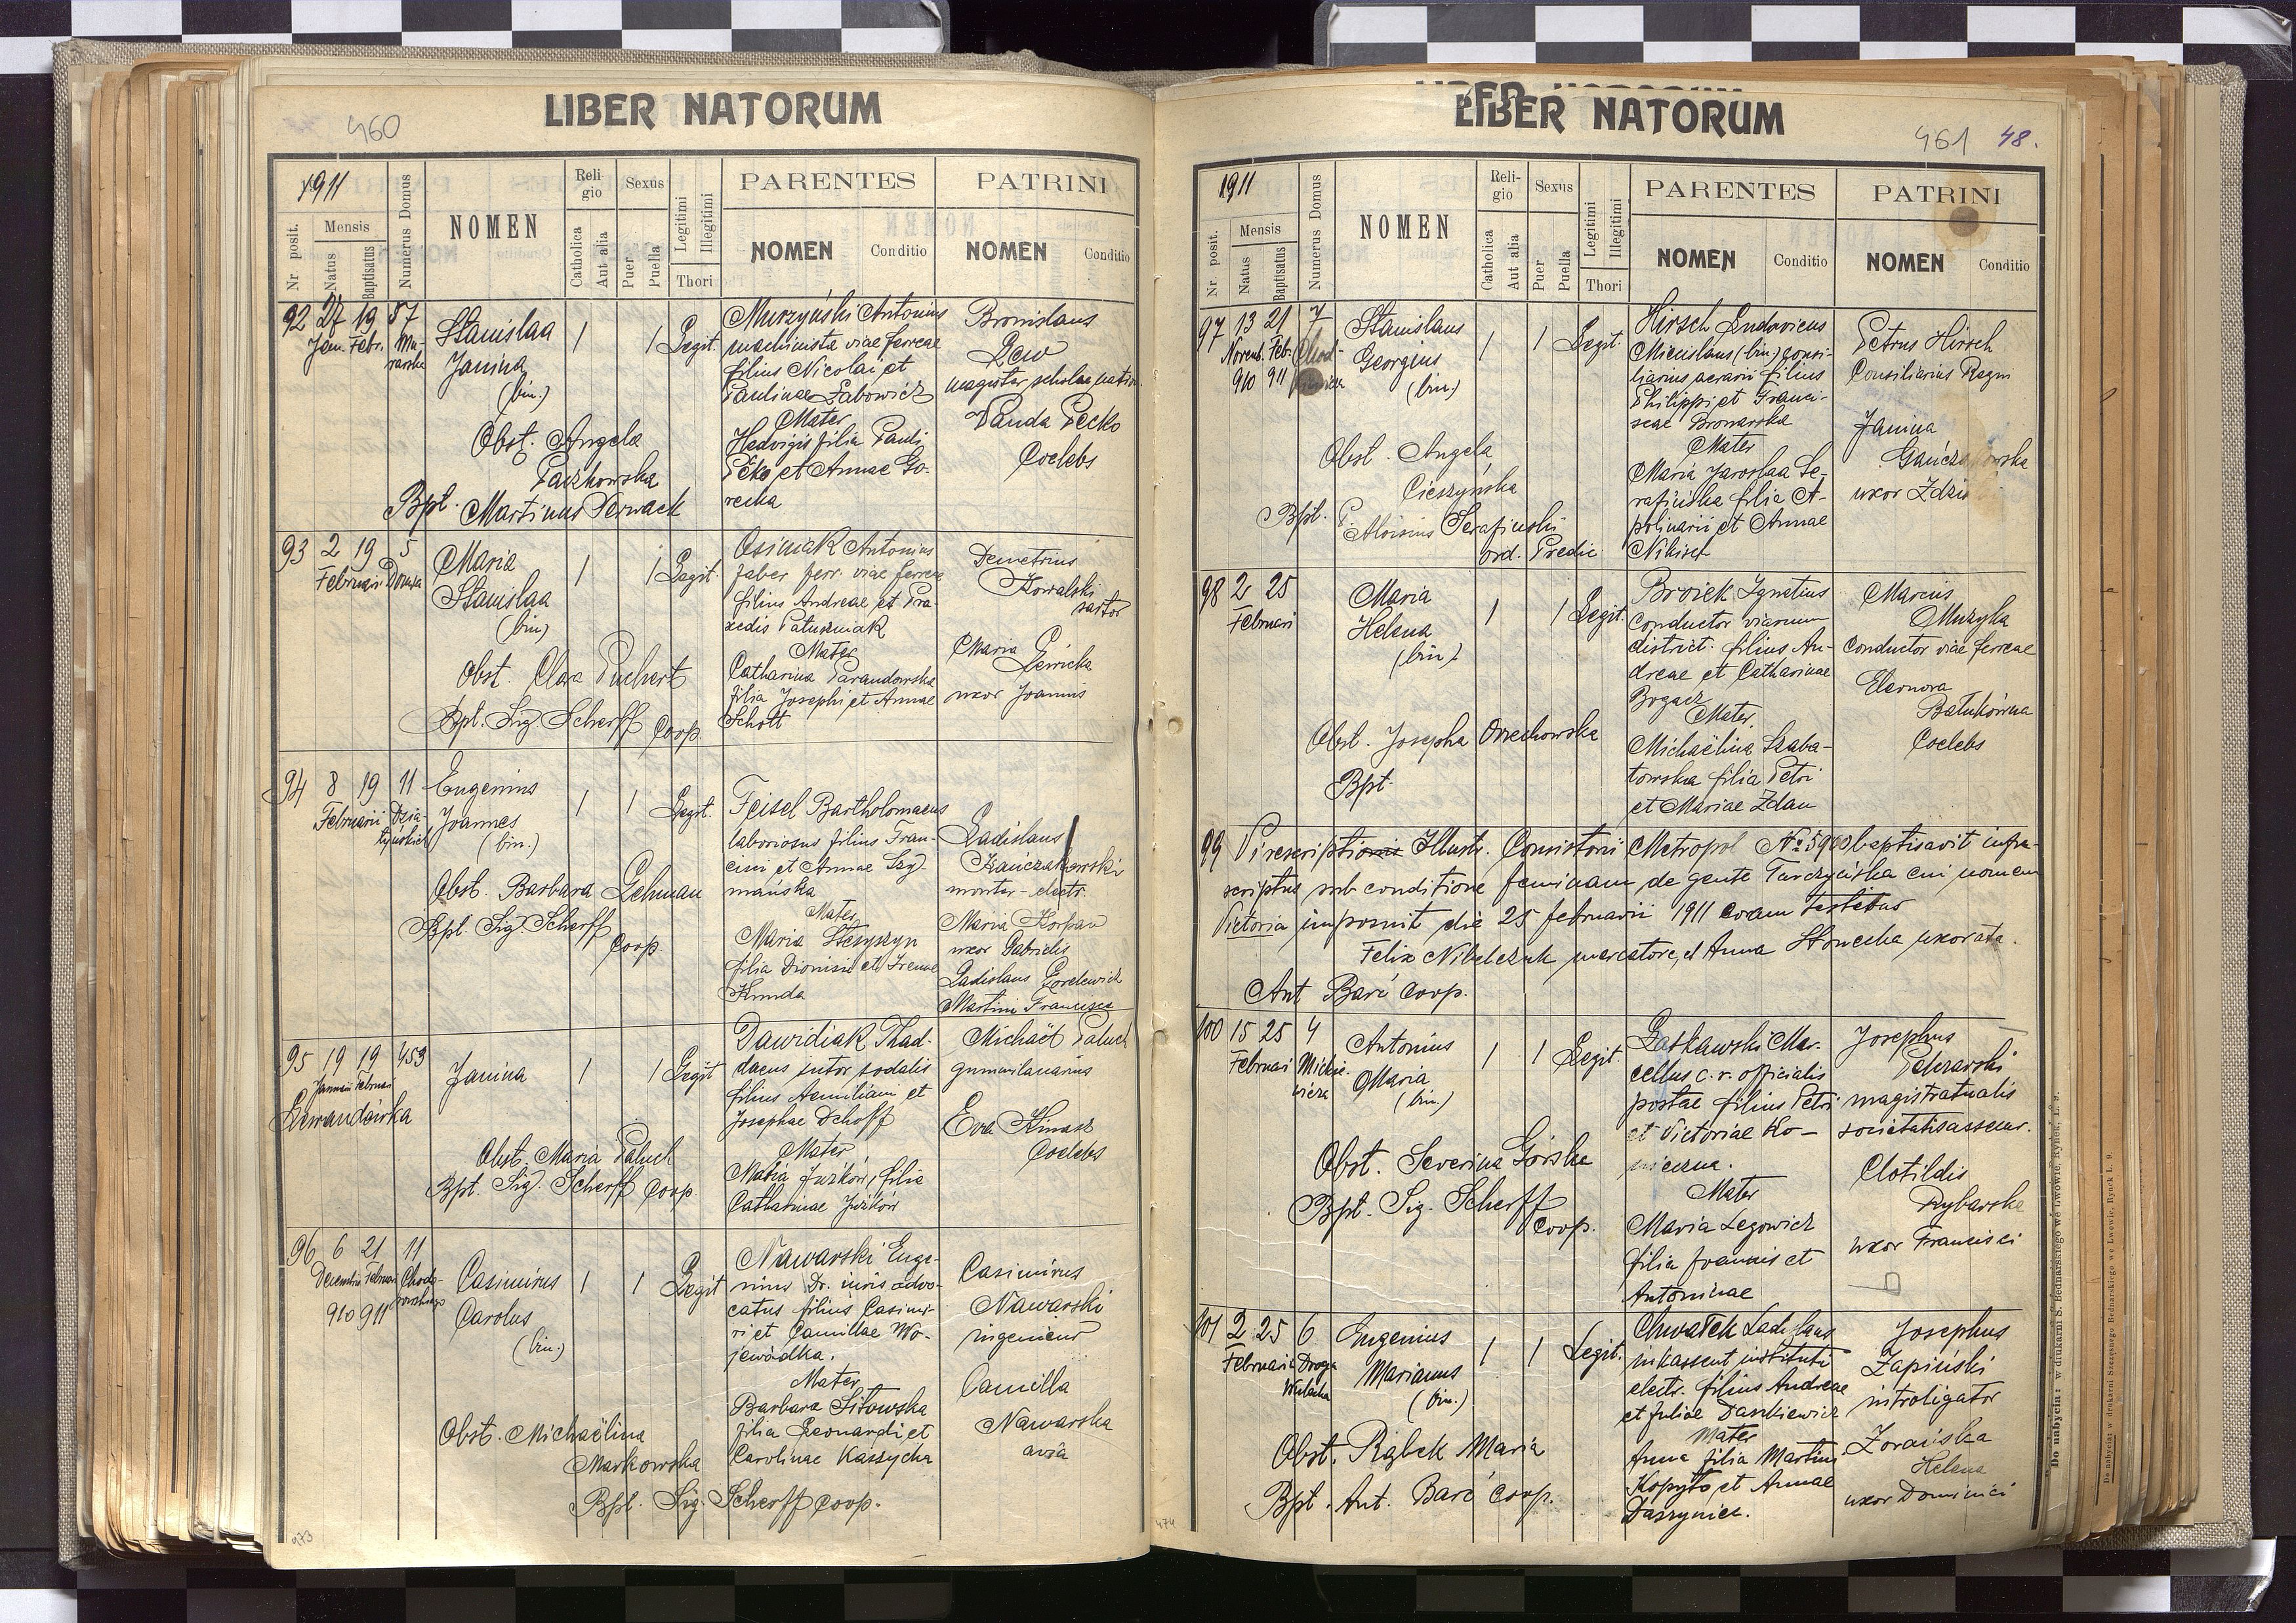 LIBER NATORUM
460
1911
Nr posit.
Mensis
Natus
Baptisatus
Numerus Domus
NOMEN
Religio
Catholica
Aut alia
Sexus
Puer
Puella
Legitimi
Illegitimi
Thori
PARENTES
NOMEN Conditio
PATRINI
NOMEN Conditio
92 27 19 57
Jan. Febr. Mu-
rarska
Stanislaa
Janina
(bin.)
1 1 Legit.
Obst. Angela
Paszkowska
Bpt. Martinus Perwack
Murzyński Antonius
machinista viae ferreae
filius Nicolai et
Paulinae Labowicz
Mater
Hedvigis filia Pauli
Pecko et Annae Go-
recka
Bronislaus
Lew
magister scholae
Vanda Pecko
Coelebs
93 2 19 5
Februarii
Maria
Stanislaa
(bin)
1 1 Legit.
Obst. Clara Puchert
Bpt. Sig Scherff Coop.
Osimak Antonius
faber ferr. viae ferreae
filius Andreae et Pra-
xedis
Mater
Catharina Parandowska
filia Josephi et Annae
Schott
Demetrius
Kowalski
sartor
Maria
uxor Joannis
94 8 19 11
Februarii Dzia-
łyńskich
Eugenius
Joannes
(bin.)
1 1 Legit.
Obst. Barbara Lehman
Bpt. Sig. Scherff
Coop.
Feisel Bartholomaeus
laboriosus filius Fran-
cisci et Annae Szy-
mańska
Mater
Maria Stesyszyn
filia Dionisii et Irenae
Kunda
Ladislaus
Kańczakowski
monter - electr.
Maria Korpan
uxor Gabrielis
Ladislaus Gorelewicz
Martini Francisca
95 19 19 453
Januarii Februarii
Lewandówka
Janina
1 1 Legit
Obst. Maria Paluch
Bpt. Sig. Scherff Coop.
Dawidiak Thad-
daeus sutor sodalis
filius Aemiliani et
Josephae Dehoff
Mater
Maria Juzków, filia
Catharinae Juzków
Michaël Paluch
Eva Kinasz
Coelebs
96 6 21 11
Decembris Februarii Chodo-
rowskiego
910 911
Casimirus
Carolus
(bin.)
1 1 Legit
Obst. Michaëlina
Markowska
Bpt. Sig. Scherff Coop.
Nawarski Euge-
nius Dr. iuris advo-
catus filius Casimi-
ri et Camillae Wo-
jewódka.
Mater
Barbara Sitowska
filia Leonardi et
Carolinae Kassycha
Casimirus
Nawarski
ingenieur
Camilla
Nawarska
avia
473
LIBER NATORUM
461 48.
1911
Nr. posit.
Mensis
Natus
Baptisatus
Numerus Domus
NOMEN
Religio
Catholica
Aut alia
Sexus
Puer
Puella
Legitimi
Illegitimi
Thori
PARENTES
NOMEN Conditio
PATRINI
NOMEN Conditio
97 13 21 7
Novemb. Feb.
910 911
Stanislaus
Georgius
(bin.)
1 1 Legit.
Obst. Angela
Cieszyńska
Bpt. P. Aloisius Serafinski
ord. Predic.
Hirsch Ludovicus
Miecislaus (bin) consi-
liarius aerarii filius
Philippi et Franci-
scae Bronarska
Mater
Maria Jaroslaa Se-
rafińska filia A-
polinarii et Annae
Nikisch
Petrus Hirsch
Consiliarius Regni
Janina
uxor
98 2 25
Februarii
Maria
Helena
(bin)
1 1 Legit.
Obst. Josepha Orzechowska
Bpt.
Broiek Ignatius
conductor viarum
district. filius An-
dreae et Catharinae
Bogacz
Mater
Michaëlina Szaba-
towska filia Petri
et Mariae Zdan
Marcus
Muzyka
Conductor viae ferreae
Eleonora
Batukówna
Coelebs
99 Vi rescripti Illustr. Consistorii Metropol № 5940 baptisavit infra-
scriptus sub conditione feminam de gente Turczyńska cui nomen
Victoria imposuit die 25 februarii 1911 coram testibus
Felix Nibelczuk mercatore, et Anna Słonecka uxorata.
Ant Barć Coop.
100 15 25 4
Februarii Mickie-
wicza
Antonius
Maria
(bin.)
1 1 Legit.
Obst. Severina Górska
Bpt. Sig. Scherff
Coop.
Laskawski Mar-
cellus c. r. officialis
postae filius Petri
et Victoriae Ko-
nieczna.
Mater
Maria Legowicz
filia Joannis et
Antoninae
Josephus
magistratualis
societatis assecur.
Clotildis
Rybarska
uxor Francisci
101 2 25 6
Februarii Droga
Wulecka
Eugenius
Marianus
(bin.)
1 1 Legit.
Obst. Rąbek Maria
Bpt. Ant. Barć Coop.
Chwałek Ladislaus
inkassent instituti
electr. filius Andreae
et Juliae Daszkiewicz
Mater
Anna filia Martini
Kopyto et Annae
Daszynicz.
Josephus
Zapiński
introligator
Zorańska
Helena
uxor Dominici
474
Do nabycia: w drukarni S. Bednarskiego we Lwowie, Rynek, L. 9.
Do nabycia: w drukarni Szczęsnego Bednarskiego we Lwowie, Rynek L. 9.